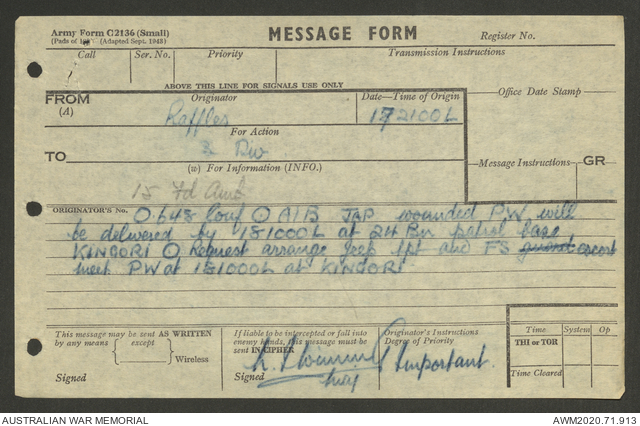 Army Form C2136 (Small)
(Pads of (Adapted Sept. 1943)
MESSAGE FORM
Register No.
Call Ser. No. Priority Transmission Instructions
ABOVE THIS LINE FOR SIGNALS USE ONLY
FROM
(A)
Originator
Raffles
Date—Time of Origin
172100L
Office Date Stamp
For Action
TO
3 Div
(w) For Information (INFO.)
15 Fd Amb
Message Instructions GR
ORIGINATOR'S No. O.648 (.) JAP wounded PW will
be delivered by 181000L at 24 Bn patrol base
KINGORI O Request arrange jeep and FS guard escort
meet PW at 181000L at KINGORI.
This message may be sent AS WRITTEN
by any means except
Wireless
Signed
If liable to be intercepted or fall into
enemy hands, this message must be
sent IN CIPHER
Signed
Originator's Instructions
Degree of Priority
Important.
Time System Op
THI or TOR
Time Cleared
AUSTRALIAN WAR MEMORIAL
AWM2020.71.913